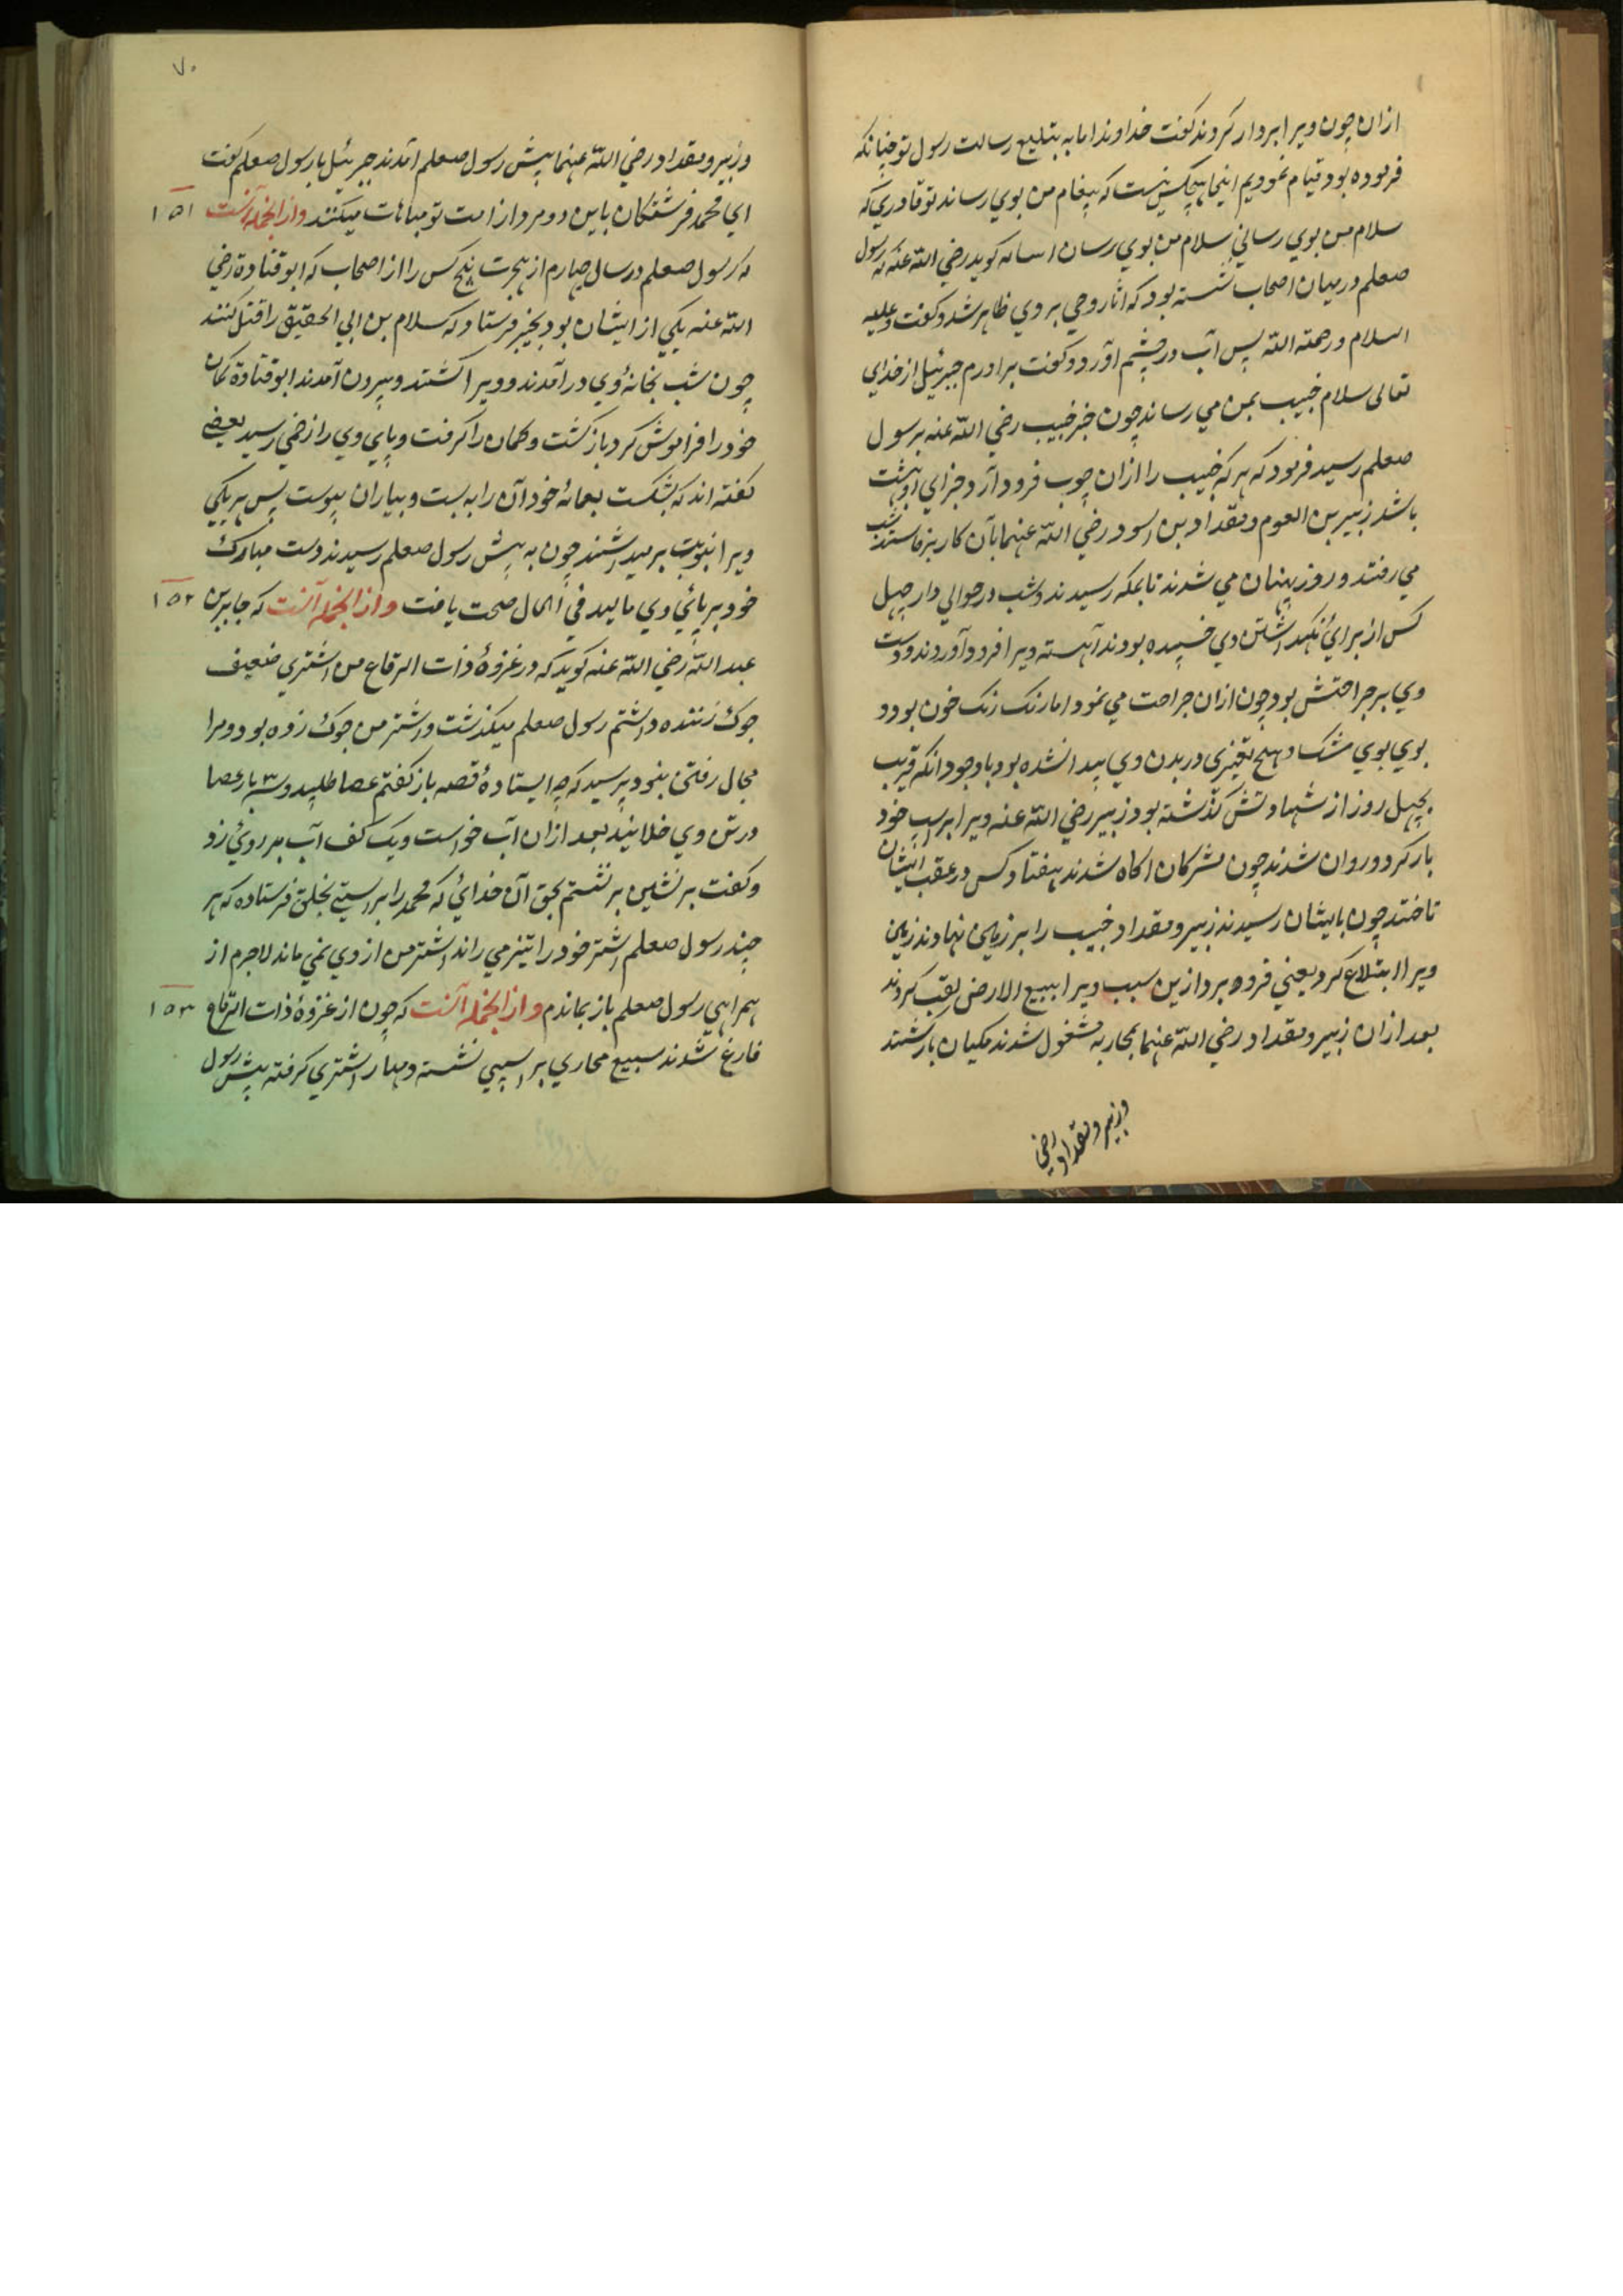 ازان چون ویرا بردار کردند کفت خداوندا ما به تبلیع رسالت رسول تو چنانکه
فرموده بود قیام نمودیم اینجا هیچکس نیست که پیغام من بوی رساند تو قادری که
سلام من بوی رسانی سلام من بوی رسان اسامه کوید رضی الله عنه که رسول
صعلم درمیان اصحاب نشسته بود که اثار وحی بر وی ظاهر شد و کفت وعلیه
السلام ورحمته الله پس آب در چشم آورد و کفت برادرم جبرئیل از خدای
تعالی سلام خبیب بمن می رساند چون خبر خبیب رضی الله عنه برسول
صعلم رسید فرمود که هر که خبیب را ازان چوب فرود آرد جزای او بهشت
باشد زبیر بن العوم و مقداد بن اسود رضی الله عنهما بآن کار برخاستند شب
می رفتند و روز پنهان می شدند تا بمکه رسیدند و شب در حوالی دار چهل
کس از برای نکهداشتن وی خسپیده بودند آهسته ویرا فرود آوردند و دست
وی بر جراحتش بود چون ازان جراحت می نمود اما رنک رنک خون بود و
بوی بوی مشک و هیچ تغیری در بدن وی پیدا نشده بود با وجود انکه قریب
بچهل روز از شهادتش کذشته بود زبیر رضی الله عنه ویرا بر اسپ خود
بار کرد و روان شدند چون مشرکان اکاه شدند هفتاد کس در عقب ایشان
تاختند چون بایشان رسیدند زبیر و مقداد خبیب را بر زمین نهادند زمین
ویرا ابتلاع کرد یعنی فرو برد ازین سبب ویرا بلیع الارض لقب کردند
بعد ازان زبیر و مقداد رضی الله عنهما بمحاربه مشغول شدند مکیان باز کشتند
و زبیر و مقداد رضی
۷۰
و زبیر و مقداد رضی الله عنهما پیش رسول صعلم آمدند جبرئیل با رسول صعلم کفت
ای محمد فرشتکان باین دو مرد از امت تو مباهات میکنند و از انجمله آنست ۱۵۱
که رسول صعلم در سال چهارم از هجرت پنج کس را از اصحاب که ابو قتادة رضی
الله عنه یکی از ایشان بود بخیبر فرستاد که سلام بن ابی الحقیق را قتل کنند
چون شب بخانهٔ وی در آمدند و ویرا کشتند و بیرون آمدند ابو قتادة کمان
خود را فراموش کرد باز کشت و کمان را کرفت و پای وی را زخمی رسید بعضی
کفته اند که بشکست بعمامهٔ خود آن را به بست و بیاران پیوست پس هر یکی
ویرا بنوبت بر میداشتند چون به پیش رسول صعلم رسیدند دست مبارک
خود بر پائی وی مالید فی الحال صحت یافت و از انجمله آنست که جابر بن ۱۵۲
عبد الله رضی الله عنه کوید که در غزوهٔ ذات الرقاع من اشتری ضعیف
جوک زننده داشتم رسول صعلم میکذشت و اشتر من جوک زده بود و مرا
مجال رفتن نبود پرسید که چه ایستادهٔ قصه باز کفتم عصا طلبید و سه بار عصا
در وی خلانید بعد ازان آب خواست و یک کف آب بر روئی زد
و کفت بر نشین بر نشستم بحق آن خدائی که محمد را براستی بخلق فرستاده که هر
چند رسول صعلم اشتر خود را تیز می راند اشتر من از وی نمی ماند لاجرم از
همراهی رسول صعلم باز نماندم و از انجمله آنست که چون از غزوهٔ ذات الرقاع ۱۵۳
فارغ شدند سبیع محاربی بر اسپی نشسته و مهار اشتری کرفته پیش رسول